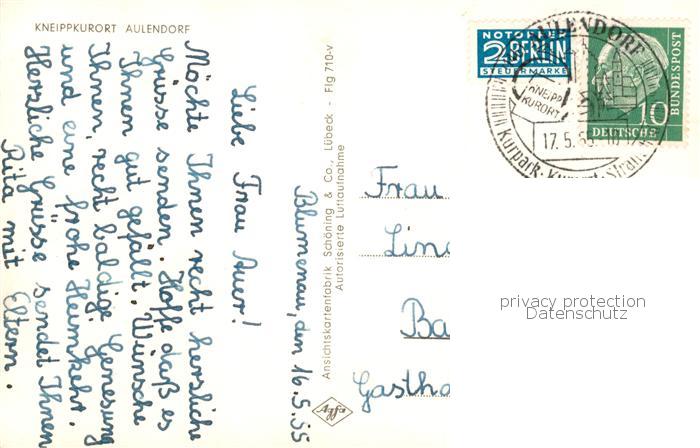 KNEIPPKURORT AULENDORF
Blumenau, den 16.5.55
Liebe Frau Auer!
Möchte Ihnen recht herzliche
Grüsse senden. Hoffe daß es
Ihnen gut gefällt. Wünsche
Ihnen, recht baldige Genesung
und eine frohe Heimkehr.
Herzliche Grüsse sendet Ihnen
Rita mit Eltern.
Ansichtskartenfabrik Schöning & Co., Lübeck - Flg 710-v
Autorisierte Luftaufnahme
Agfa
NOTOPFER
2 BERLIN
STEUERMARKE
AULENDORF
KNEIPP
KURORT
17.5.55
Kurpark
10
DEUTSCHE
BUNDESPOST
Frau
privacy protection
Datenschutz